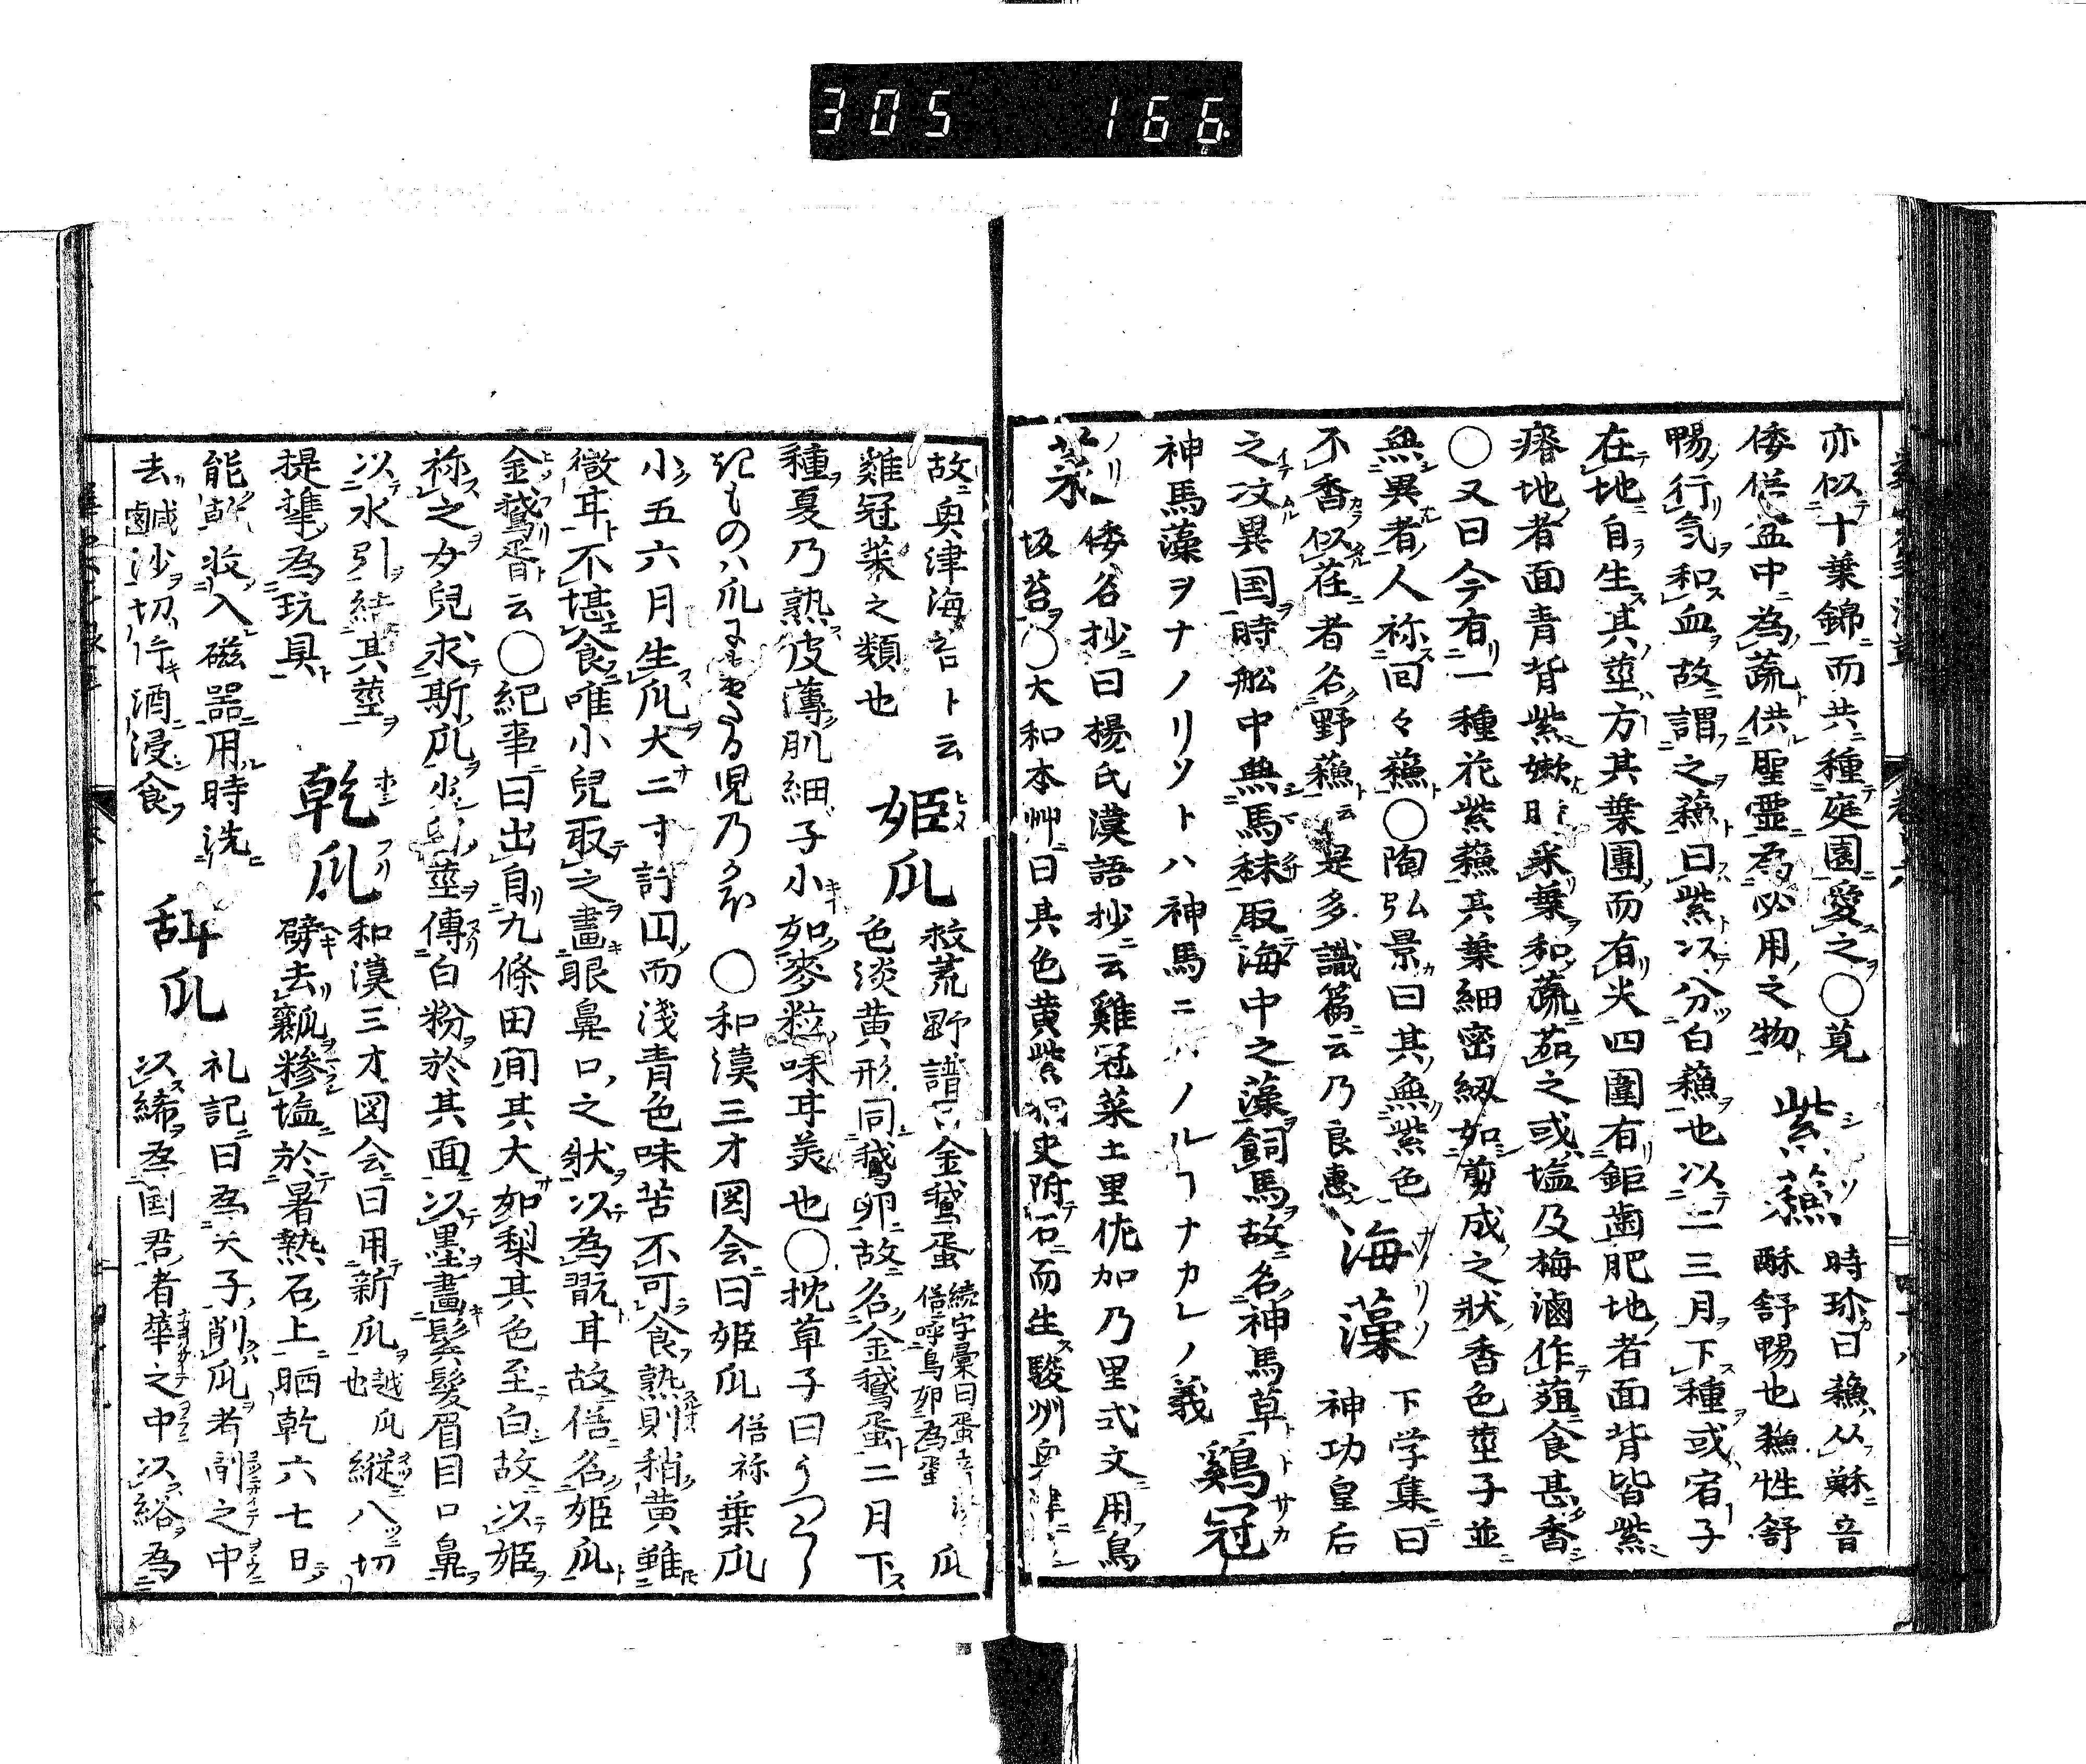 305 166
亦似十葉錦而共種庭園愛之〇莧 紫蘓 時珎曰蘓从穌音
倭俗盆中為蔬供聖霊為必用之物 酥舒暢也蘓性舒
暢行気和血故謂之蘓曰紫以分白蘓也以二三月下種或宿子
在地自生其莖方其葉團而有尖四圍有鉅歯肥地者面背皆紫
瘠地者面青背紫嫩時采葉和蔬茹之或塩及梅滷作葅食甚香
〇又曰今有一種花紫蘓其葉細密紉如剪成之狀香色莖子並
無異者人祢回々蘓〇陶弘景曰其無紫色
不香似荏者名野蘓云是多識篇云乃良惠
海藻 下学集曰神功皇后
之攻異国時舩中無馬秣取海中之藻飼馬故名神馬草
神馬藻ヲナノリソトハ神馬ニノルヿナカレノ義 鷄冠
菜 倭名抄曰楊氏漢語抄云雞冠菜土里佐加乃里式文用鳥
坂苔〇大和本艸曰其色黄紫附石而生駿州奥津
故奥津海苔ト云 姫瓜 救荒野譜曰金鵝蛋 続字彙曰蛋 俗呼鳥卵為蛋 瓜
雞冠菜之類也 色淡黄形同鵝卵故名金鵝蛋二月下
種夏乃熟皮薄肌細子小如麥粒味甘美也〇枕草子曰うつくし
きものハ瓜にかきたる児乃かほ 〇和漢三才図会曰姫瓜 俗祢葉瓜
小五六月生瓜大二寸許団而淺青色味苦不可食熟則稍黄雖
微甘不堪食唯小兒取之畫眼鼻口之狀以為翫耳故俗名姫瓜
金鵝蛋云〇紀事曰出自九條田間其大如梨其色至白故以姫
祢之女兒求斯瓜莖傳白粉於其面以墨畫髮眉目口鼻
以水引結其莖 乾瓜 和漢三才図会曰用新瓜 越瓜也 縦八切
提携為玩具 劈去瓤糝塩於暑熱石上晒乾六七日
能乾收入磁噐用時洗 舐瓜 礼記曰為天子削瓜者副之巾
去鹹沙切片酒浸食 以絺為国君者華之巾以綌為